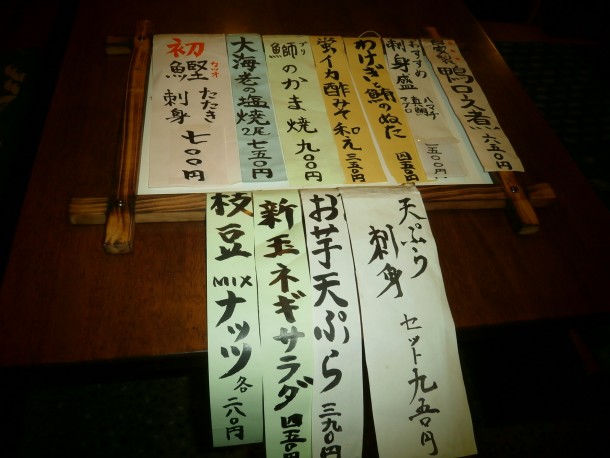 初鰹 カツオ
たたき
刺身 七〇〇円
大海老の塩焼
2尾 七五〇円
鰤のかま焼 九〇〇円
ブリ
蛍イカ酢みそ和え 三五〇円
わけぎと鮪のぬた
四五〇円
おすすめ
刺身盛
ハマチ
真鯛
マグロ
一五〇〇円
自家製 鴨ロース煮
六五〇円
枝豆
MIXナッツ
各二八〇円
新玉ネギサラダ
四五〇円
お芋天ぷら
三九〇円
天ぷら
刺身
セット九五〇円